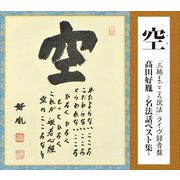 空
「三越まごころ説法」ライヴ録音盤
高田好胤 ―名法話ベスト集―
空
かたよらない
こころ
こだわらない
こころ
とらわれない
こころ
ひろく ひろく
もっと ひろく
これが 般若心経
空の こころなり
好胤